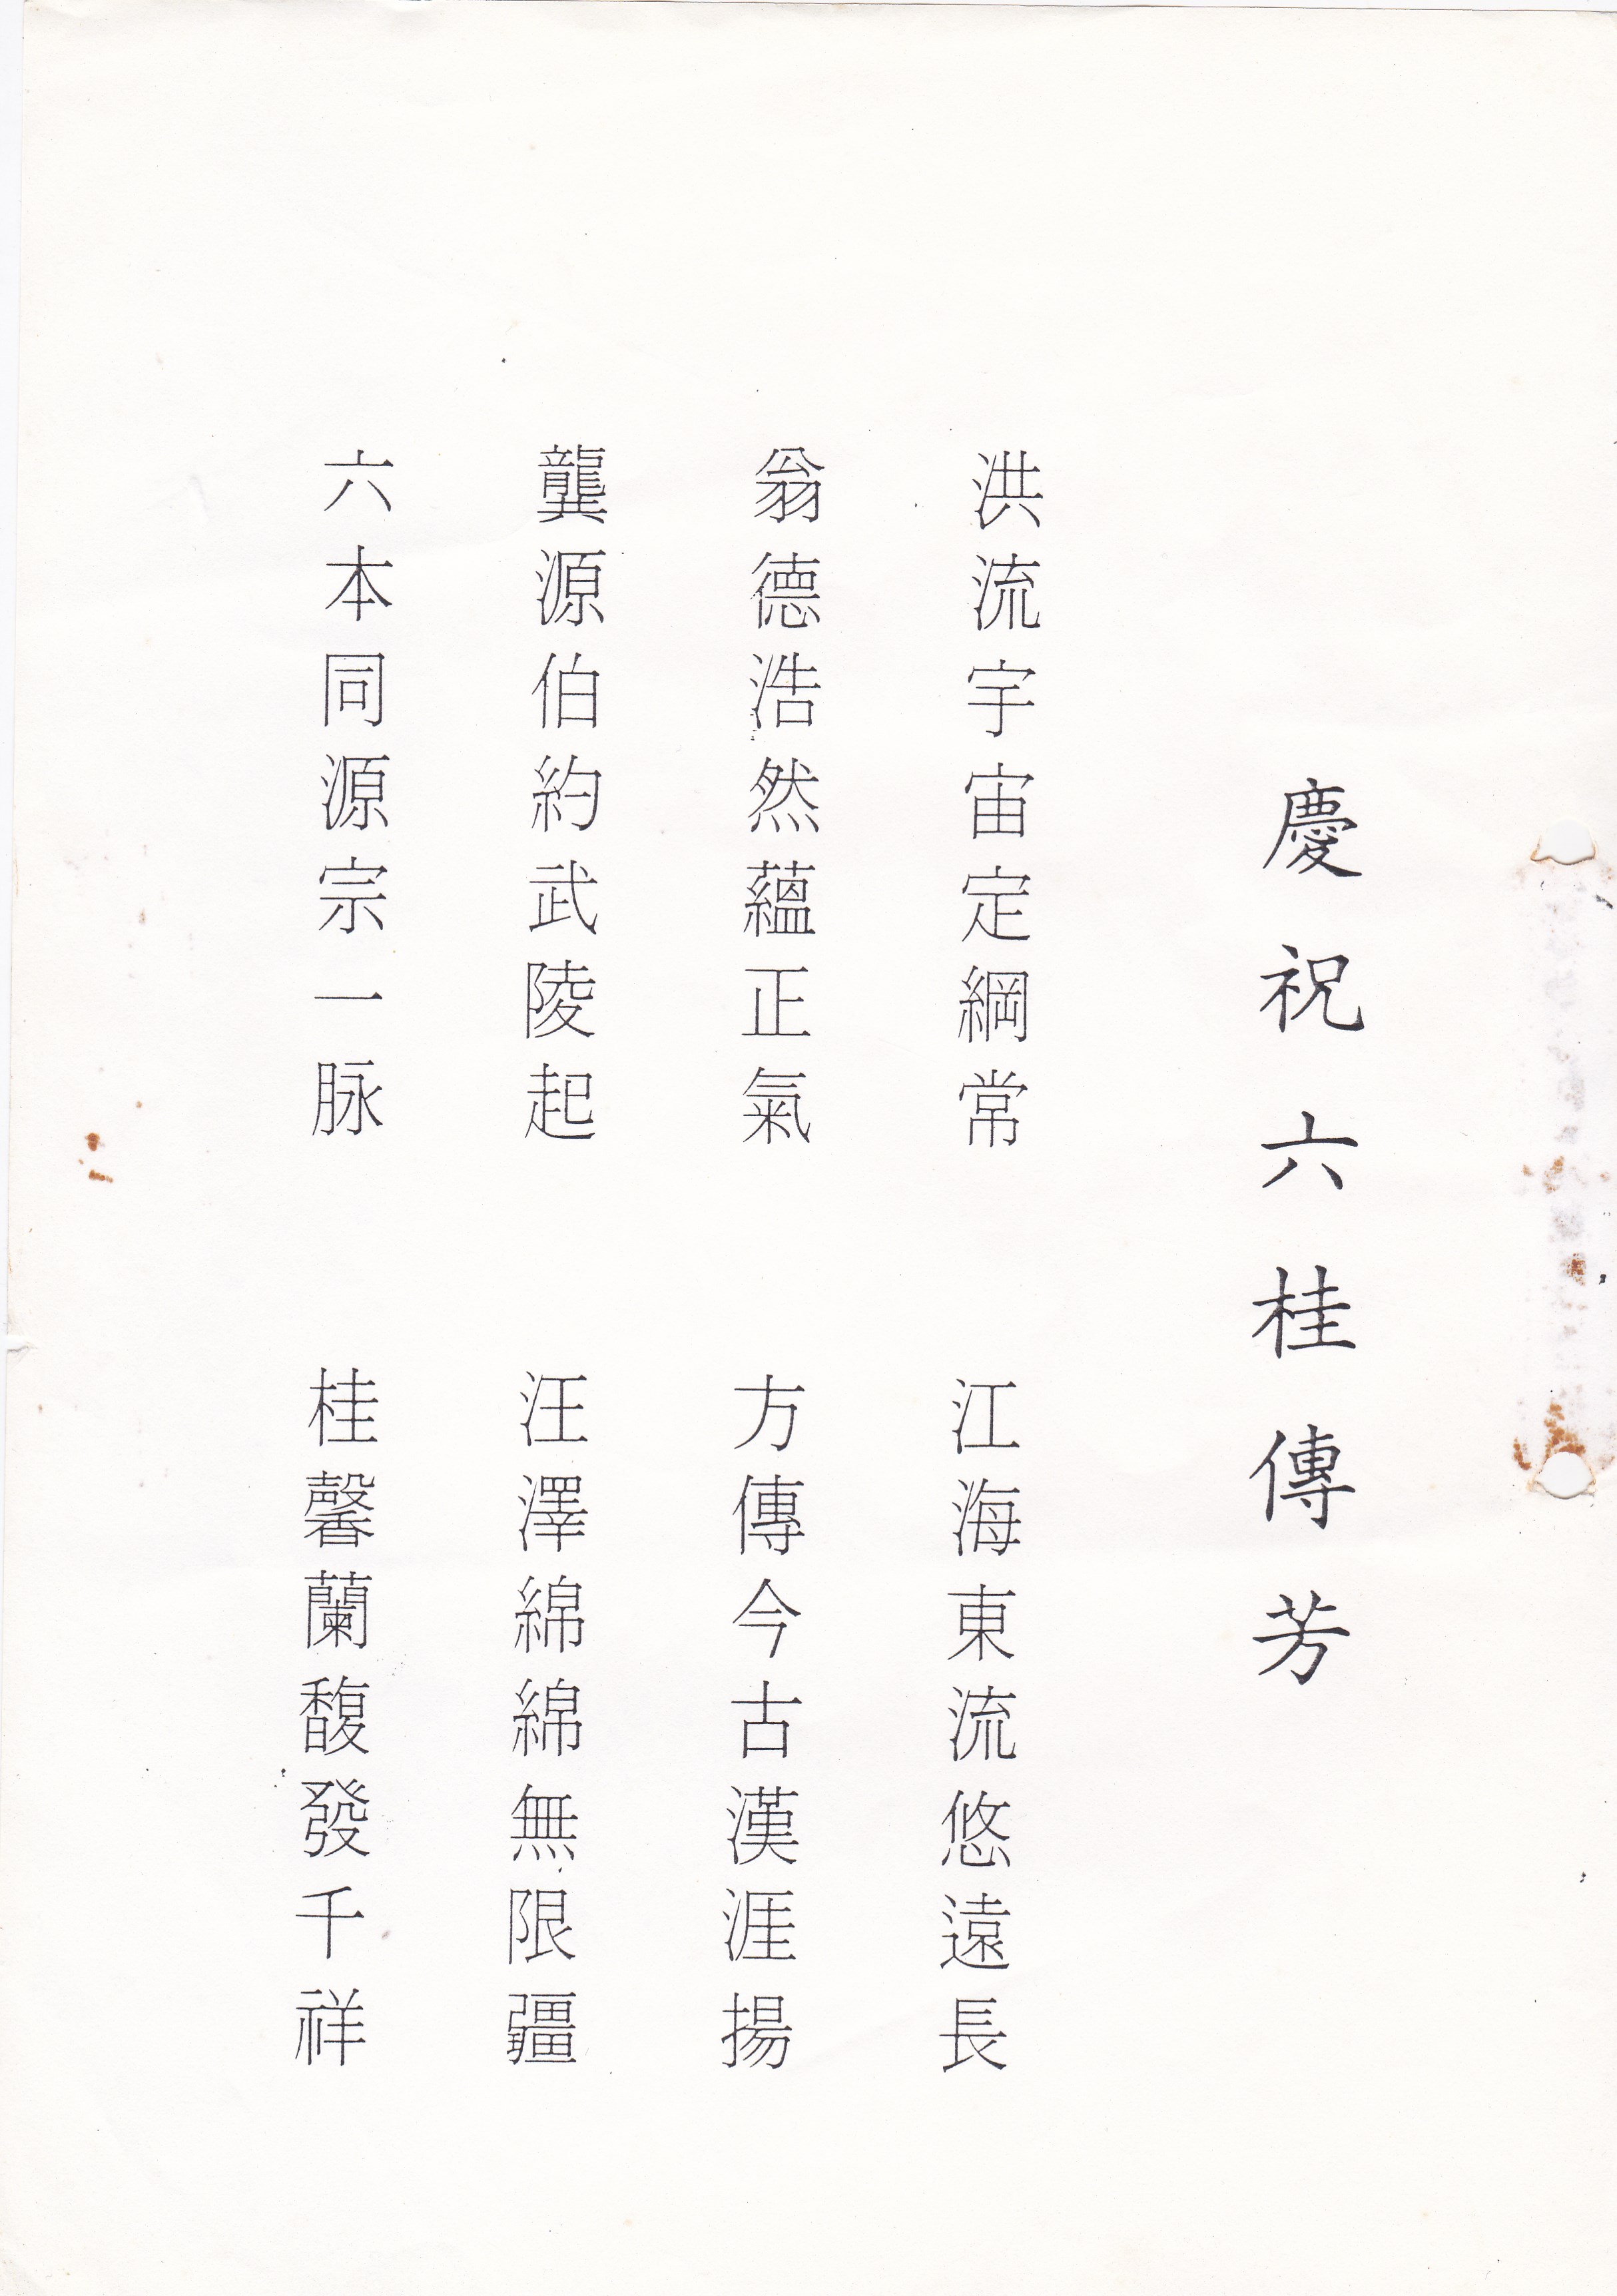 慶祝六桂傳芳
洪流宇宙定綱常 江海東流悠遠長
翁德浩然蘊正氣 方傳今古漢涯揚
龔源伯約武陵起 汪澤綿綿無限疆
六本同源宗一脉 桂馨蘭馥發千祥